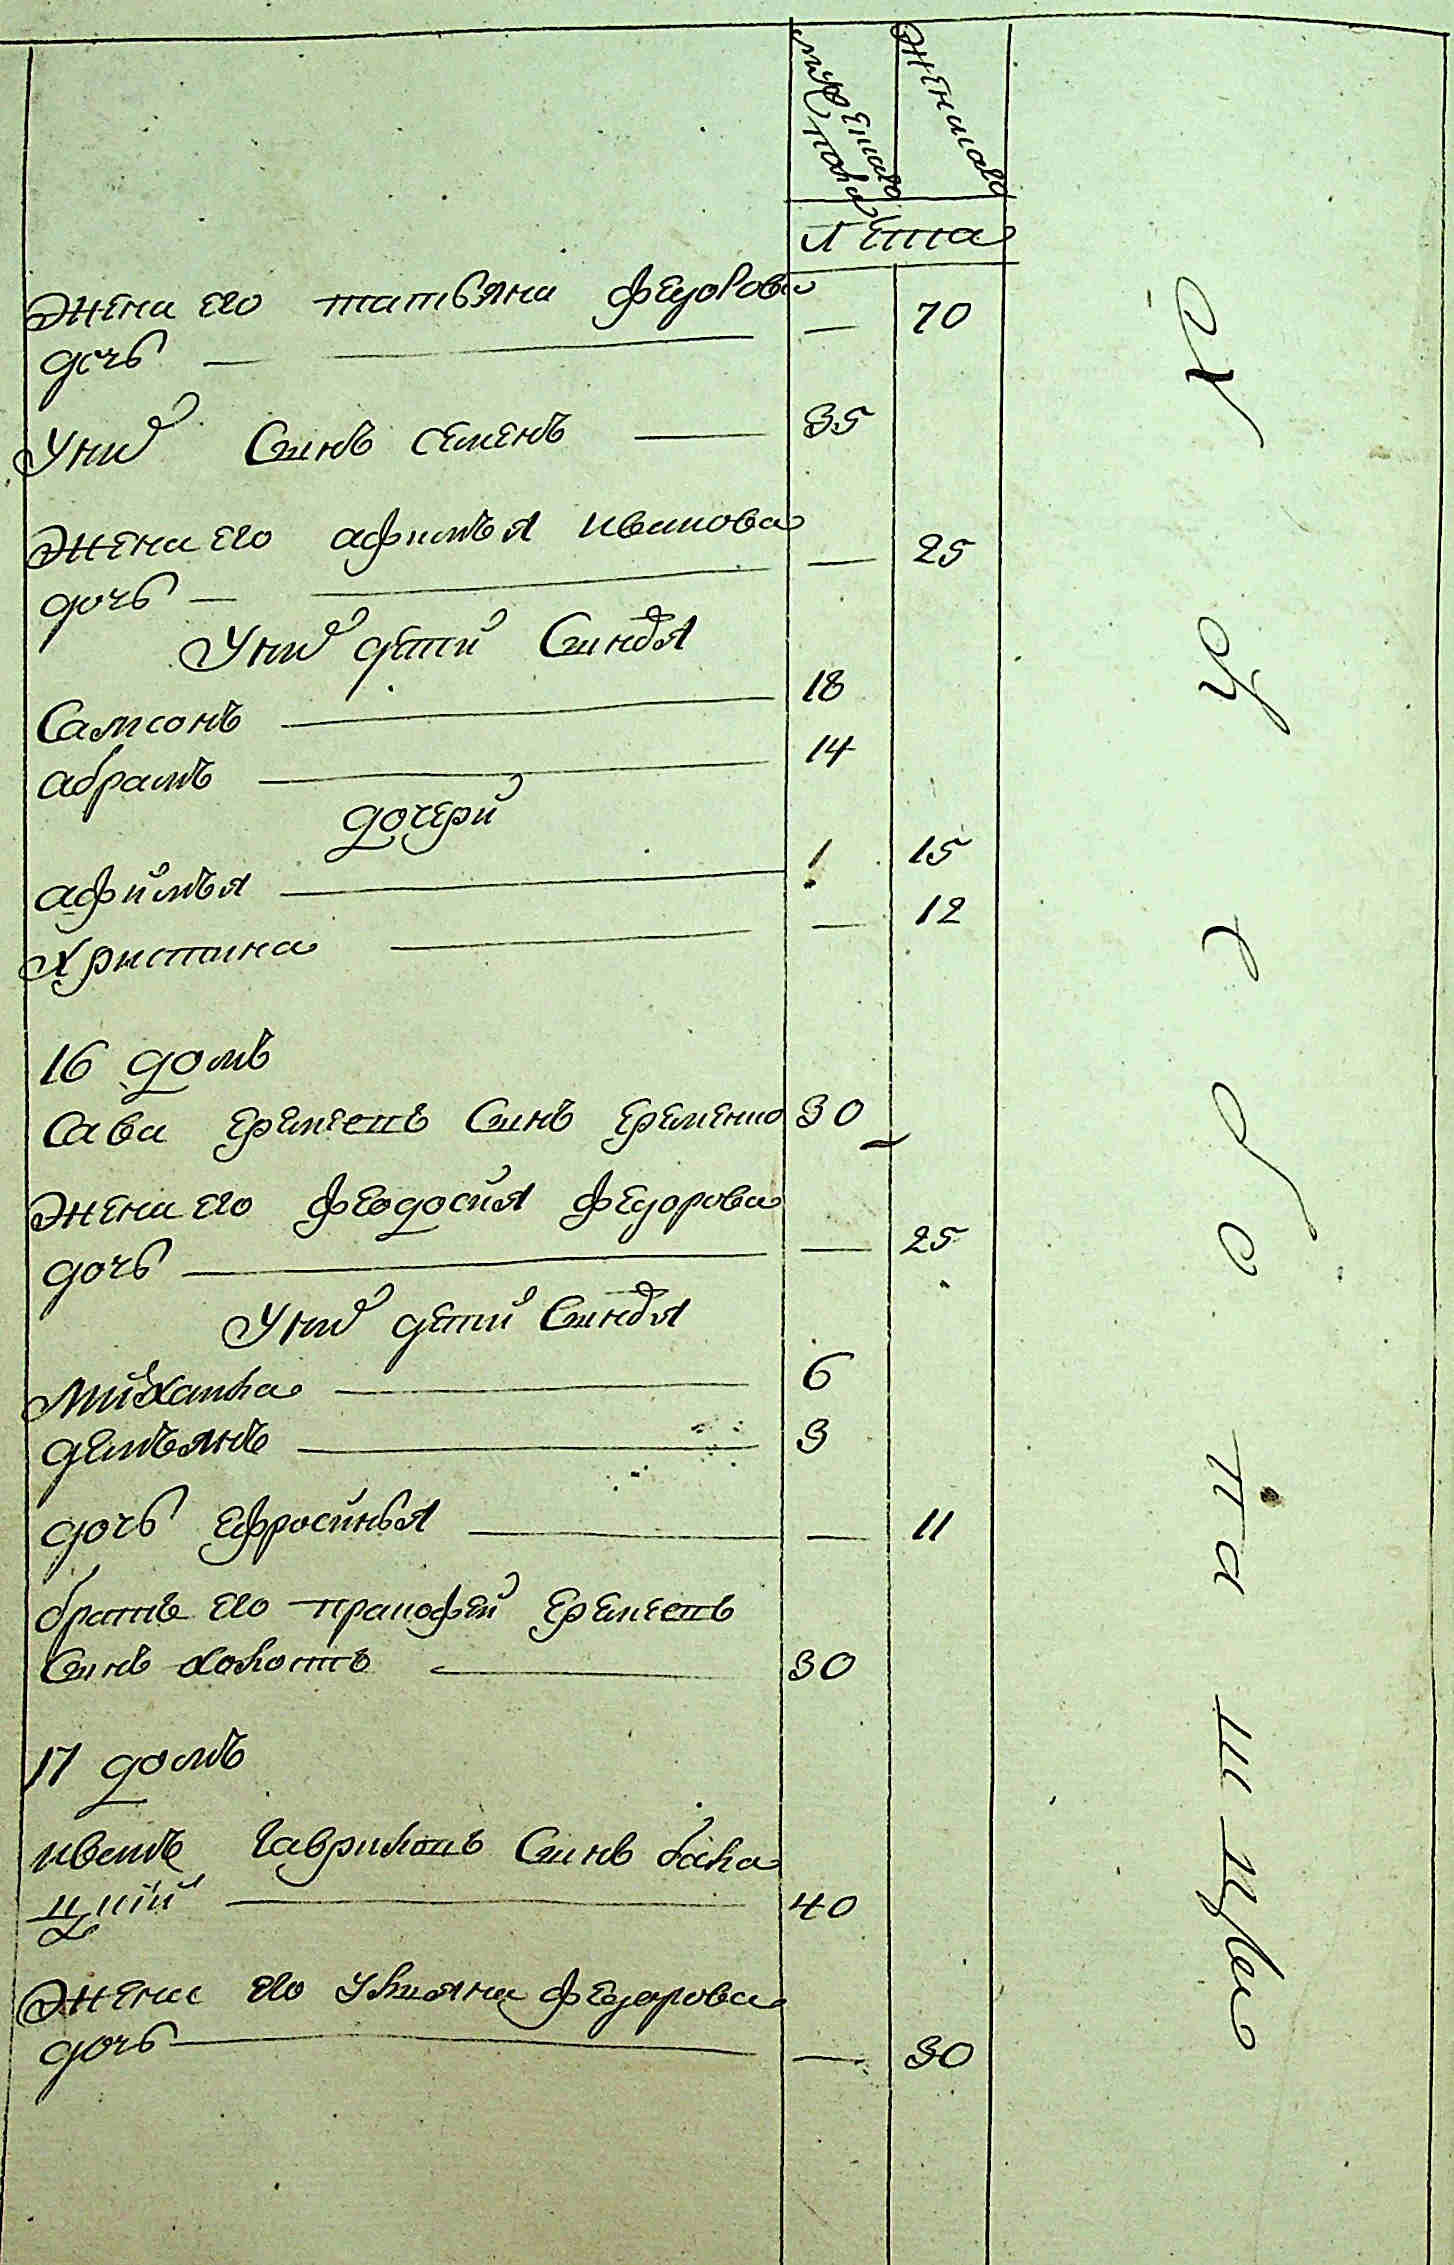 мужеска
пола
женскаго
лета
Жена его татьяна федорова
дочь — 70
У них Синъ семенъ — 35
Жена его афимья иванова
дочь — 25
У них дети Синовя
Самсонъ — 18
абрамъ — 14
дочери
афимъя — 1 15
Христина — 12
16 домъ
Сава еремеевъ Синъ еременко 30
Жена его феодосия федорова
дочь — 25
У них дети Синовя
Михайла — 6
демъянъ — 3
дочь ефросинья — 11
братъ его еремеевъ
Синъ холостъ — 30
17 домъ
иванъ гавриловъ Синъ
40
Жена его улияна федорова
дочь — 30